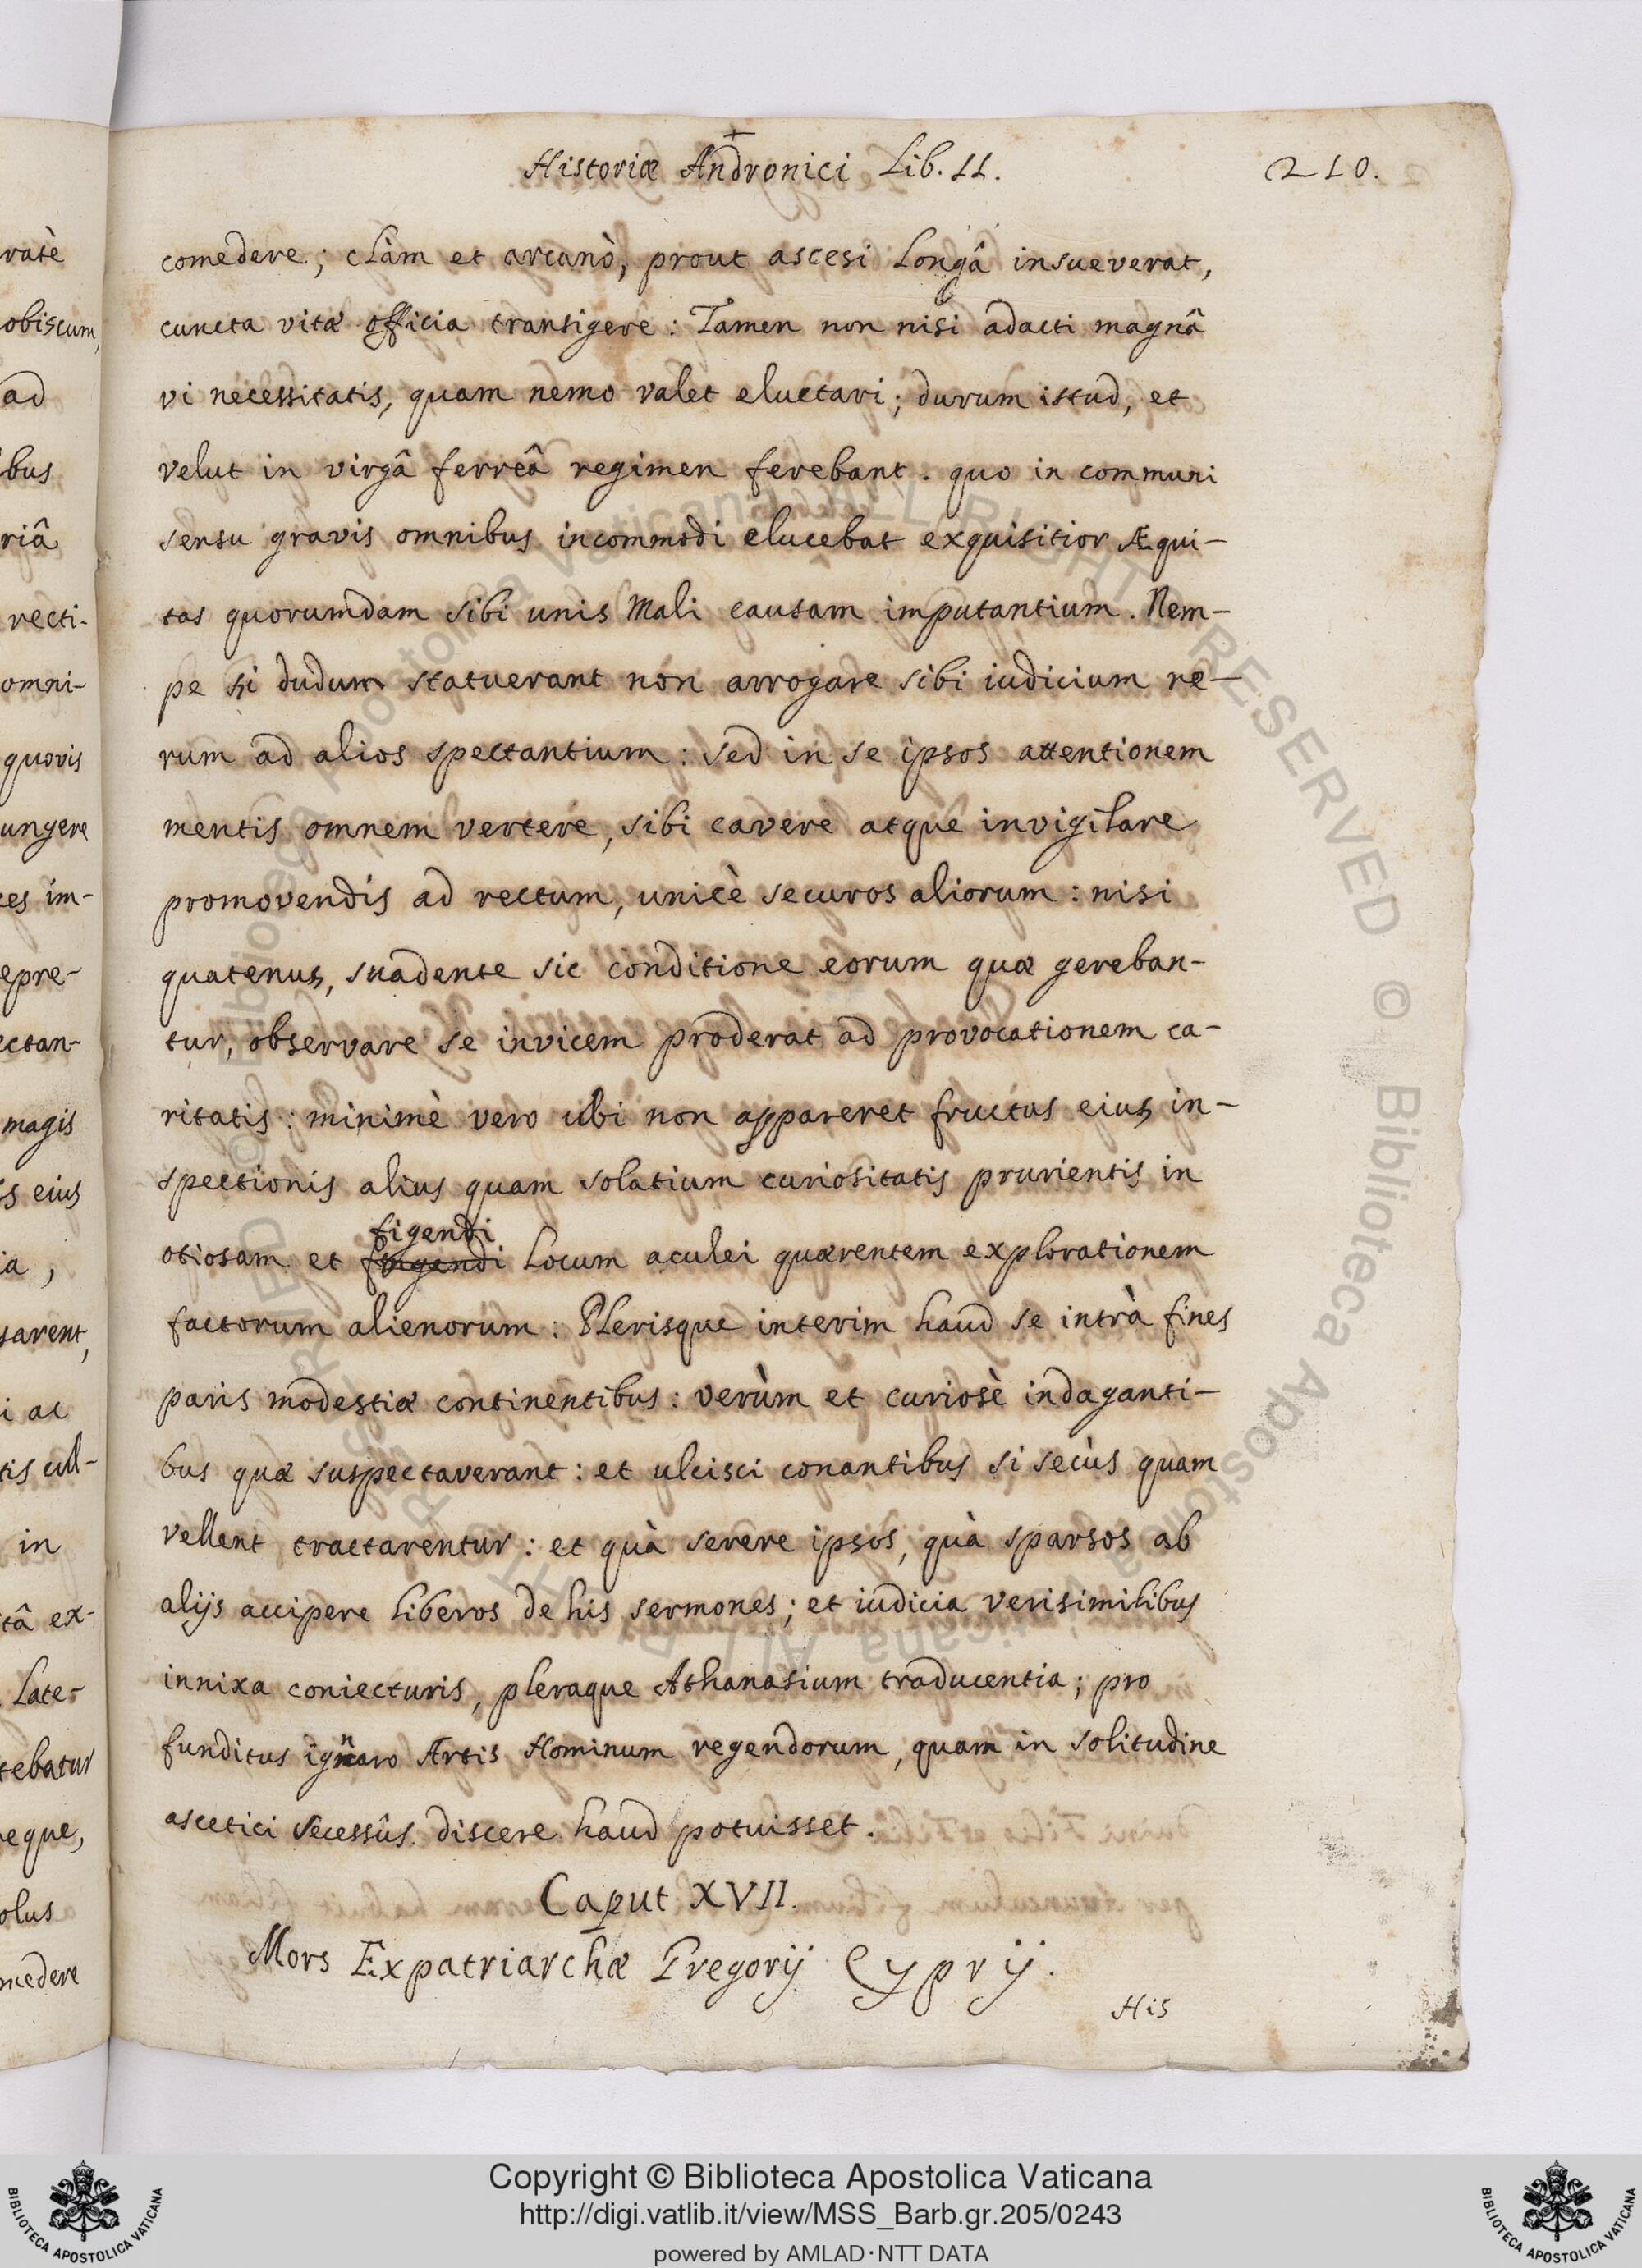 Historiæ Andronici Lib. II.
210.
comedere; clàm et arcanò, prout ascesi longâ insueverat,
cuncta vitæ officia transigere: Tamen non nisi adacti magnâ
vi necessitatis, quam nemo valet eluctari; durum istud, et
velut in virgâ ferreâ regimen ferebant. quo in communi
sensu gravis omnibus incommodi elucebat exquisitior Æqui-
tas quorumdam sibi unis Mali causam imputantium. Nem-
pe hi dudum statuerant non arrogare sibi iudicium re-
rum ad alios spectantium: sed in se ipsos attentionem
mentis omnem vertere, sibi cavere atque invigilare
promovendis ad rectum, unicè securos aliorum: nisi
quatenus, suadente sic conditione eorum quæ gereban-
tur, observare se invicem proderat ad provocationem ca-
ritatis: minimè vero ubi non appareret fructus eius in-
spectionis alius quam solatium curiositatis prurientis in
figendi
otiosam et locum aculei quærentem explorationem
factorum alienorum: Plerisque interim haud se intrà fines
paris modestiæ continentibus: verùm et curiosè indaganti-
bus quæ suspectaverant: et ulcisci conantibus si secùs quam
vellent tractarentur: et quà serere ipsos, quà sparsos ab
alijs accipere liberos de his sermones; et iudicia verisimilibus
innixa coniecturis, pleraque Athanasium traducentia; pro
funditus ignaro Artis Hominum regendorum, quam in solitudine
ascetici secessûs discere haud potuisset.
Caput XVII.
Mors Expatriarchæ Gregorij Cyprij.
His
ratè
obiscum,
ad
bus
riâ
recti-
omni-
quovis
ungere
ces im-
epre-
ectan-
magis
s eius
ia,
sarent,
i ac
tis cul-
in
tâ ex-
late-
tebatur
eque,
olus
medere
© Biblioteca Apostolica Vaticana ALL RIGHTS RESERVED
BIBLIOTECA APOSTOLICA VATICANA
Copyright © Biblioteca Apostolica Vaticana
http://digi.vatlib.it/view/MSS_Barb.gr.205/0243
powered by AMLAD･NTT DATA
BIBLIOTECA APOSTOLICA VATICANA